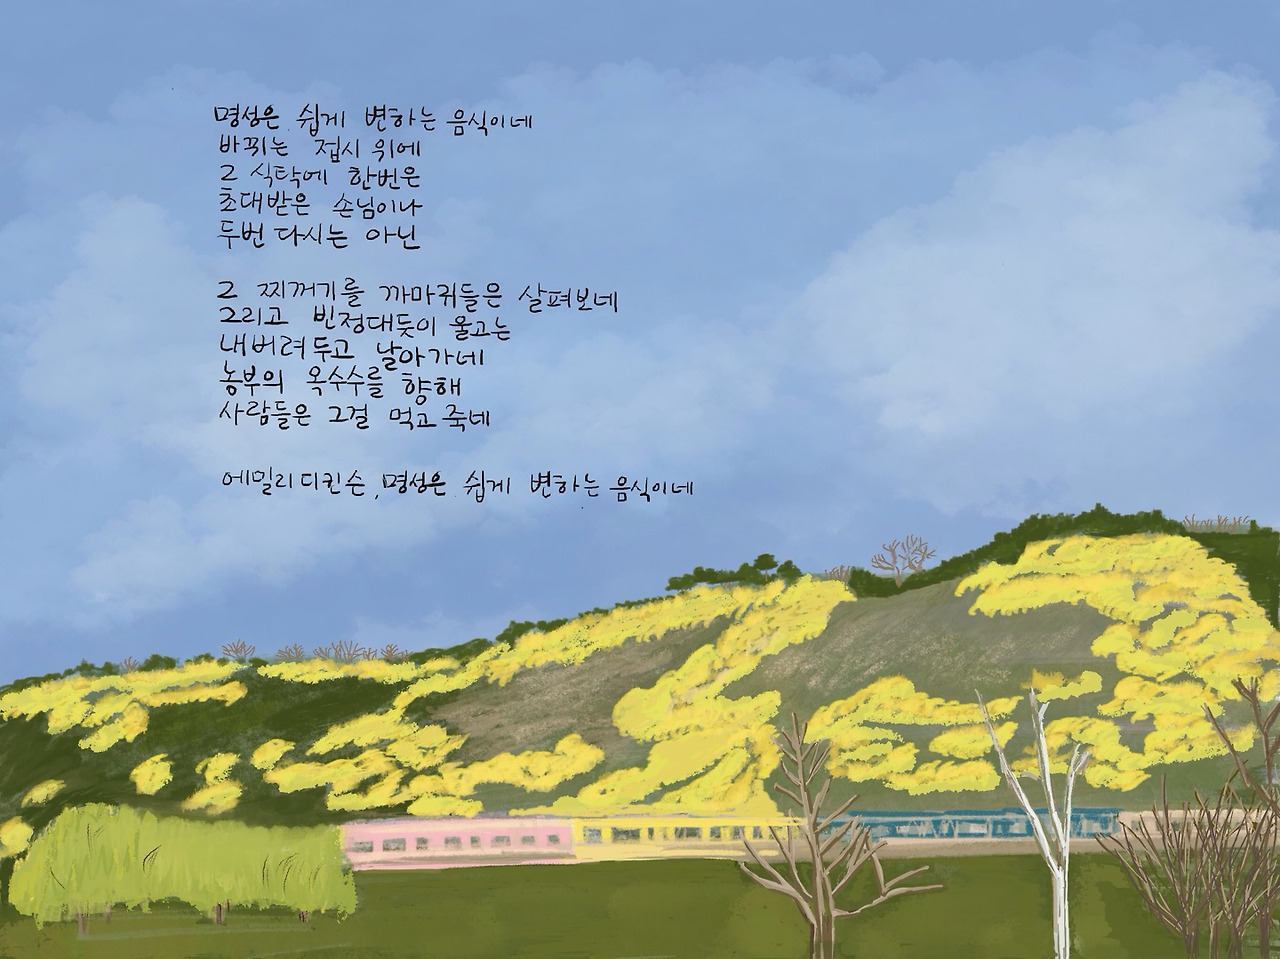 명성은 쉽게 변하는 음식이네
바뀌는 접시 위에
그 식탁에 한번은
초대받은 손님이나
두번 다시는 아닌
그 찌꺼기를 까마귀들은 살펴보네
그리고 빈정대듯이 울고는
내버려두고 날아가네
농부의 옥수수를 향해
사람들은 그걸 먹고 죽네
에밀리 디킨슨, 명성은 쉽게 변하는 음식이네